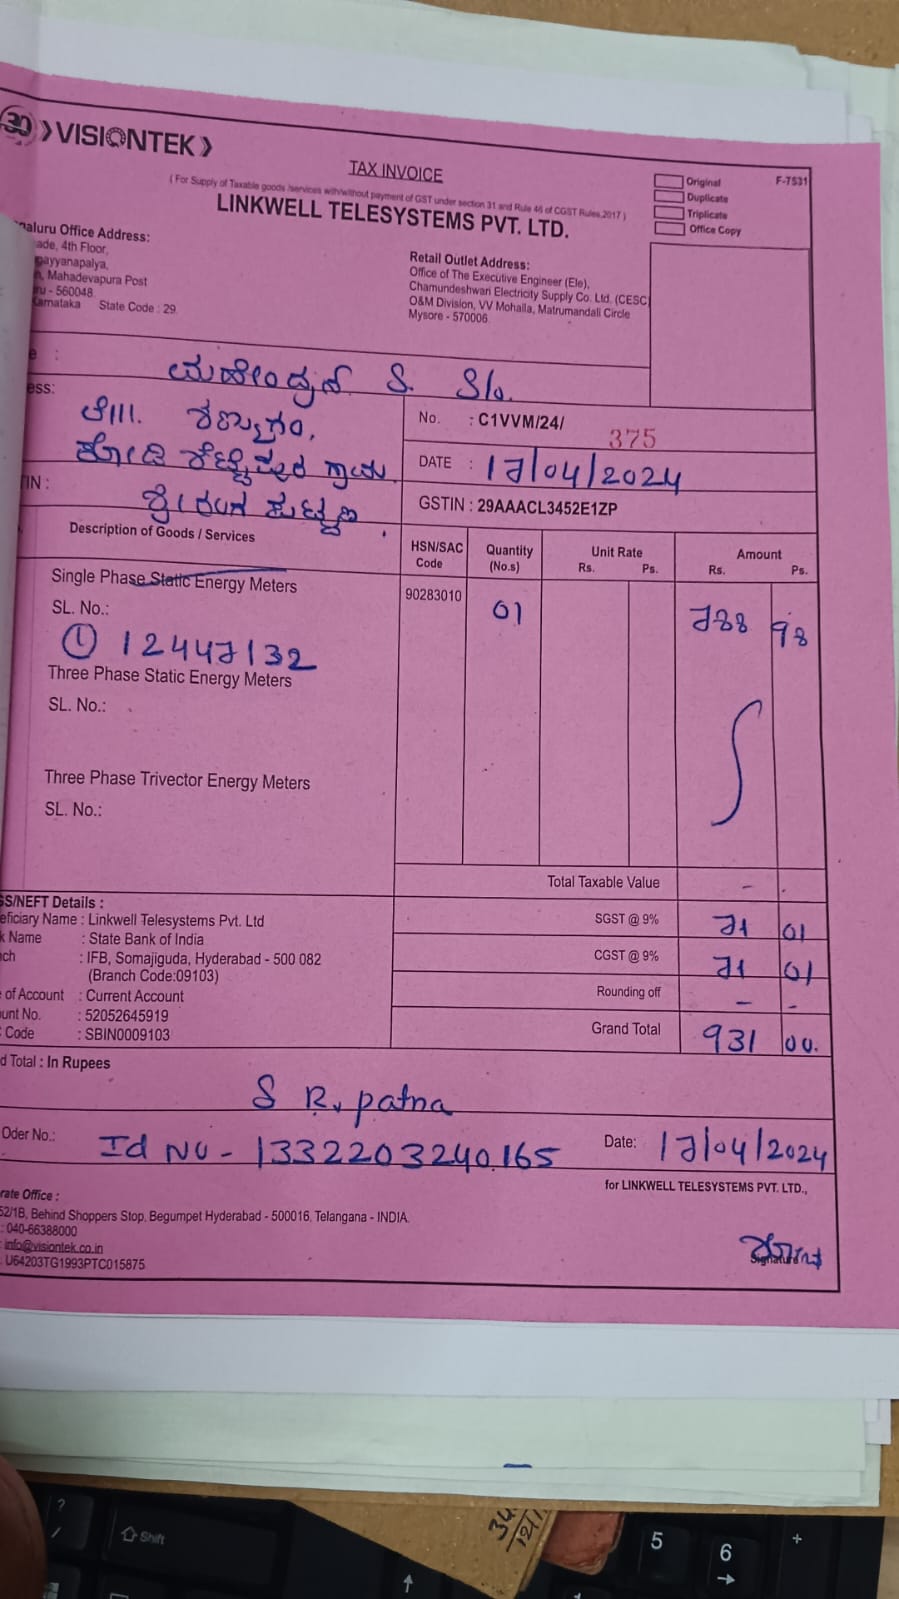 30 VISIONTEK
TAX INVOICE
( For Supply of Taxable goods /services with/without payment of GST under section 31 and Rule 46 of CGST Rules,2017 )
LINKWELL TELESYSTEMS PVT. LTD.
Original
Duplicate
Triplicate
Office Copy
F-7531
aluru Office Address:
ade, 4th Floor,
payyanapalya,
, Mahadevapura Post
ru - 560048.
Karnataka State Code : 29.
Retail Outlet Address:
Office of The Executive Engineer (Ele),
Chamundeshwari Electricity Supply Co. Ltd. (CESC
O&M Division, VV Mohalla, Matrumandali Circle
Mysore - 570006.
e : S. S/o.
ess:
ಗ್ರಾಮ
TIN :
No. : C1VVM/24/ 375
DATE : 17/04/2024
GSTIN : 29AAACL3452E1ZP
Description of Goods / Services
HSN/SAC Code
Quantity (No.s)
Unit Rate
Rs. Ps.
Amount
Rs. Ps.
Single Phase Static Energy Meters
90283010 01 788 98
SL. No.:
① 12447132
Three Phase Static Energy Meters
SL. No.:
Three Phase Trivector Energy Meters
SL. No.:
Total Taxable Value - .
SGST @ 9% 71 01
CGST @ 9% 71 01
Rounding off - -
Grand Total 931 00.
GS/NEFT Details :
eficiary Name : Linkwell Telesystems Pvt. Ltd
k Name : State Bank of India
nch : IFB, Somajiguda, Hyderabad - 500 082
(Branch Code:09103)
of Account : Current Account
unt No. : 52052645919
Code : SBIN0009103
d Total : In Rupees
S R. patna
Oder No.: Id No - 1332203240165
Date: 17/04/2024
for LINKWELL TELESYSTEMS PVT. LTD.,
rate Office :
52/1B, Behind Shoppers Stop, Begumpet Hyderabad - 500016, Telangana - INDIA.
: 040-66388000
: info@visiontek.co.in
U64203TG1993PTC015875
Signature
?
/
Shift
5
6
+